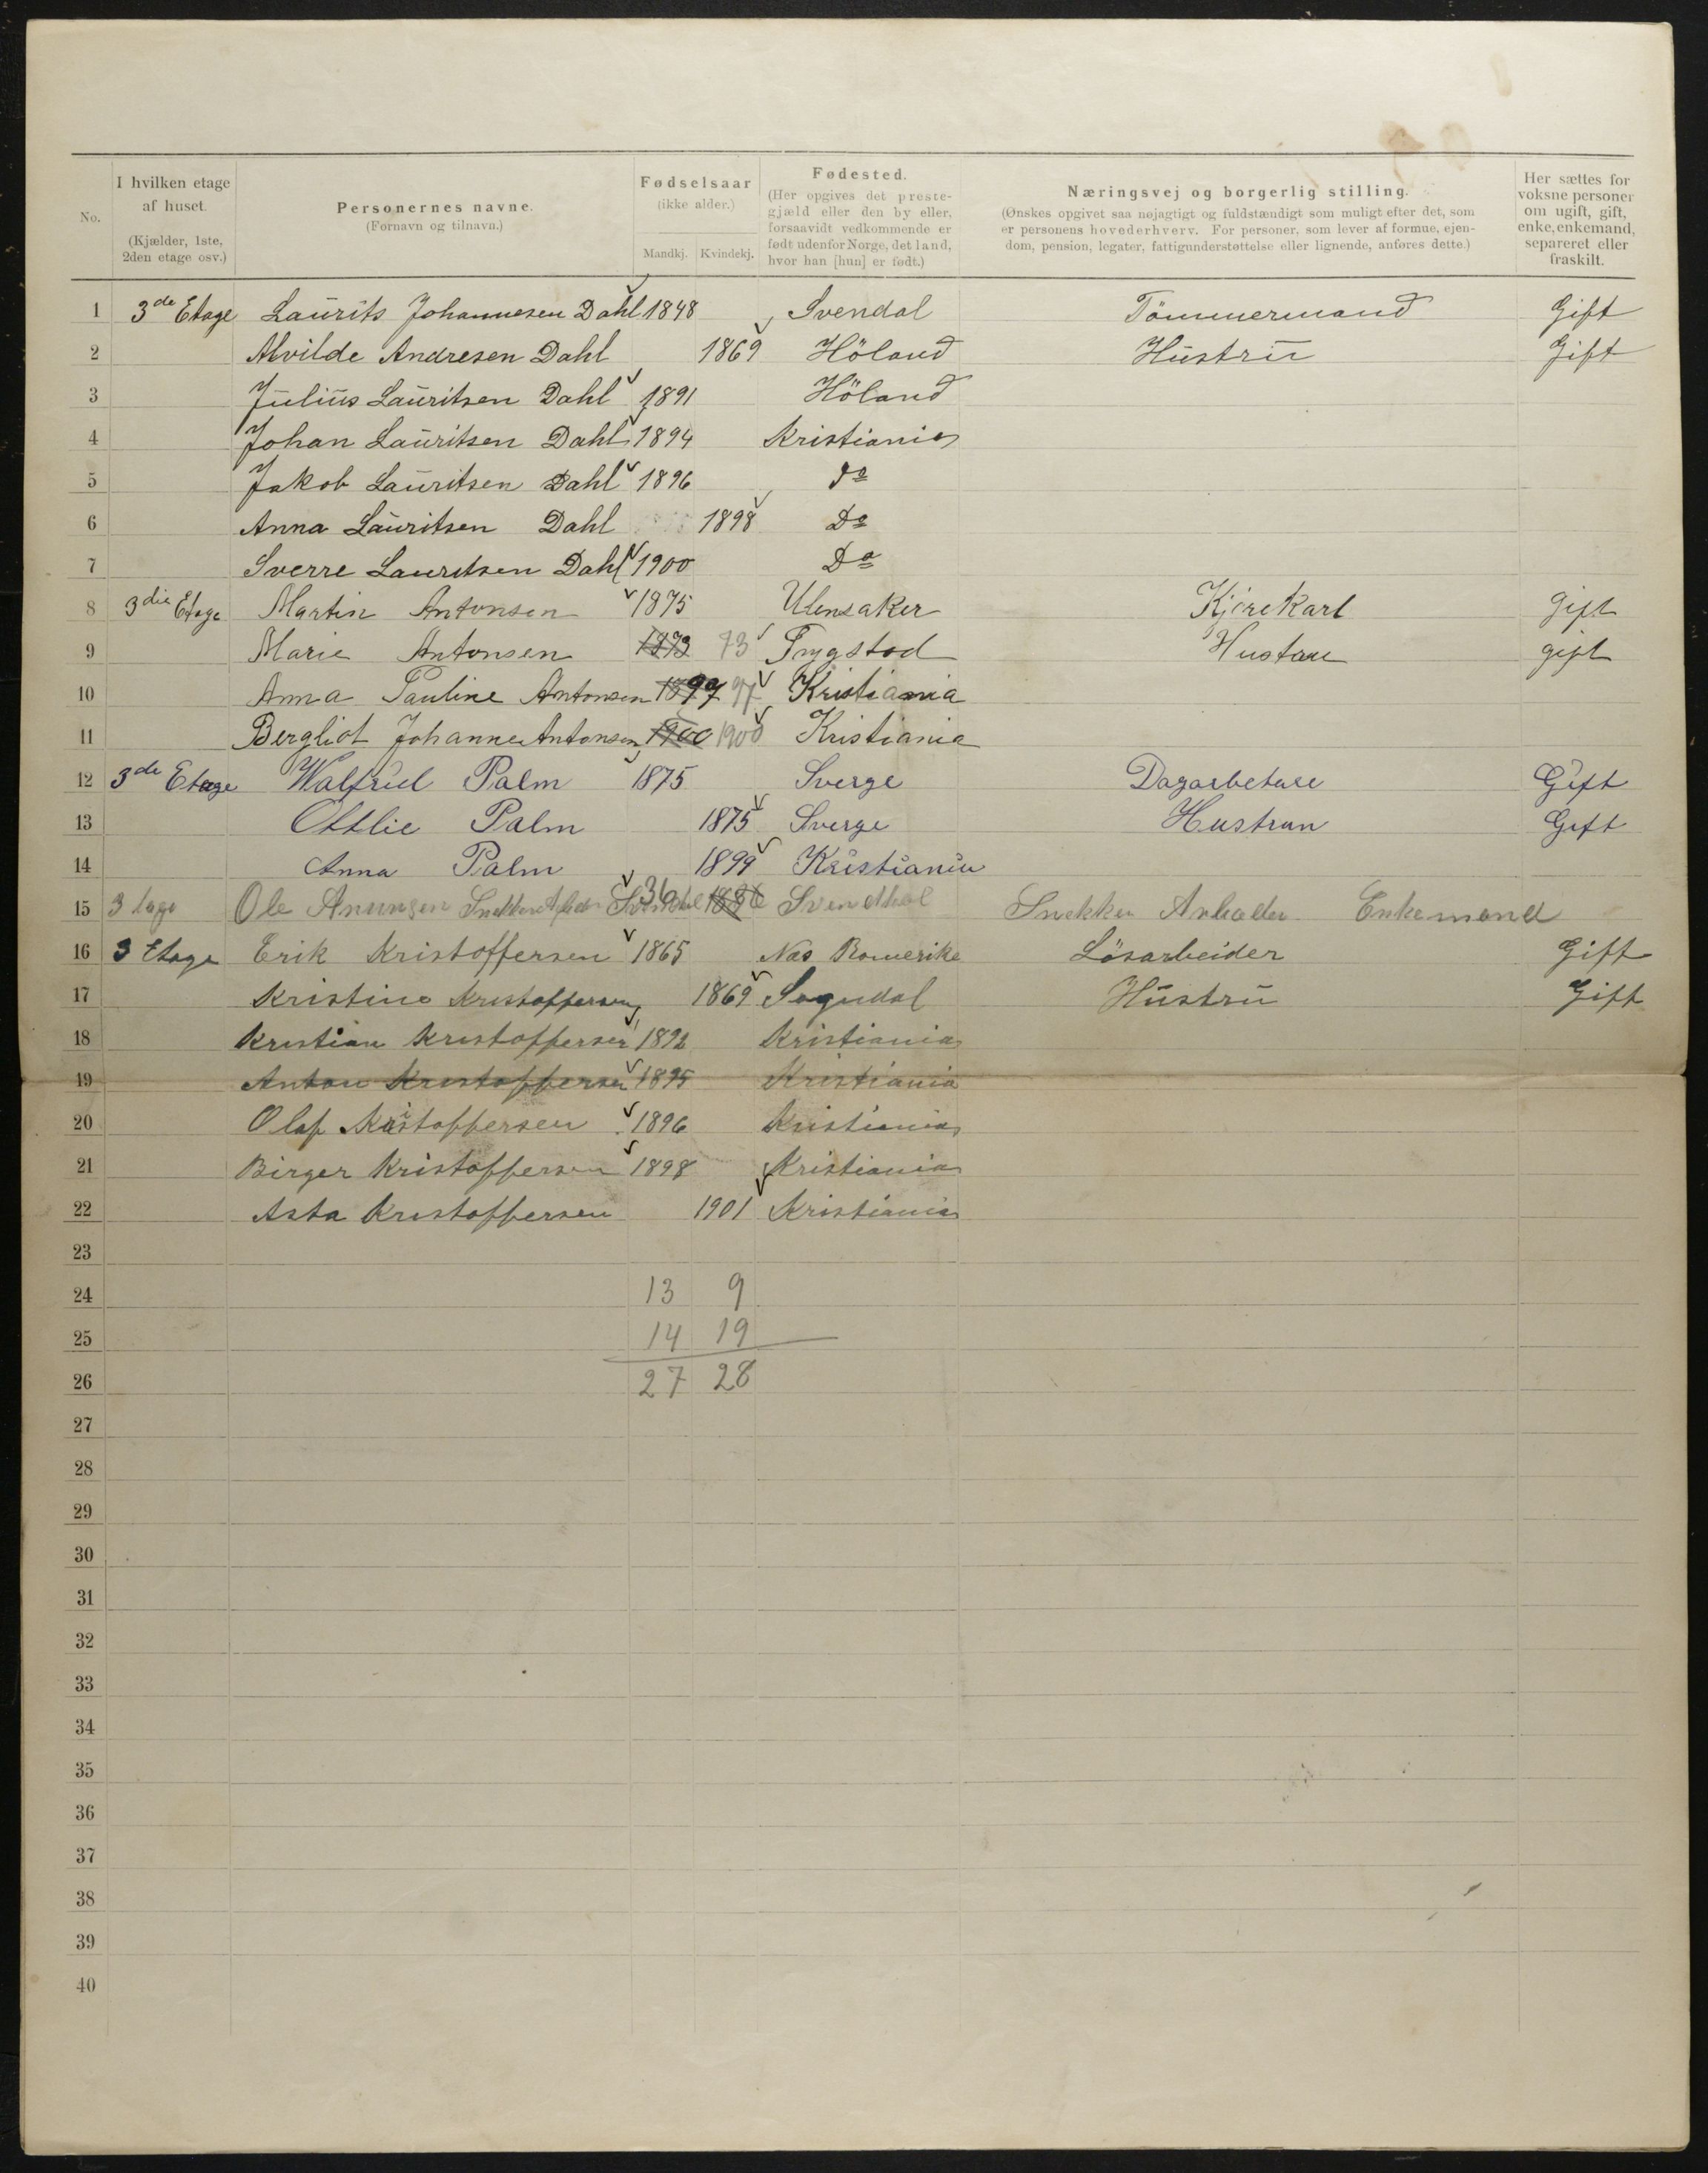 No.
I hvilken etage af huset. (Kjælder, 1ste, 2den etage osv.)
Personernes navne. (Fornavn og tilnavn.)
Fødselsaar (ikke alder.)
Mandkj. Kvindekj.
Fødested. (Her opgives det prestegjæld eller den by eller, forsaavidt vedkommende er født udenfor Norge, det land, hvor han [hun] er født.)
Næringsvej og borgerlig stilling. (Ønskes opgivet saa nøjagtigt og fuldstændigt som muligt efter det, som er personens hovederhverv. For personer, som lever af formue, ejendom, pension, legater, fattigunderstøttelse eller lignende, anføres dette.)
Her sættes for voksne personer om ugift, gift, enke, enkemand, separeret eller fraskilt.
1 3de Etage Laurits Johannesen Dahl 1848 Svendal Tömmermand Gift
2 Alvilde Andresen Dahl 1869 Höland Hustru Gift
3 Julius Lauritsen Dahl 1891 Höland
4 Johan Lauritsen Dahl 1894 Kristiania
5 Jakob Lauritsen Dahl 1896 Do
6 Anna Lauritsen Dahl 1898 Do
7 Sverre Lauritsen Dahl 1900 Do
8 3die Etage Martin Antonsen 1875 Ulensaker Kjørekarl gift
9 Marie Antonsen 1873 73 Trygstad Hustru gift
10 Anna Pauline Antonsen 1897 97 Kristiania
11 Bergliot Johanne Antonsen 1900 1900 Kristiania
12 3de Etage Walfrid Palm 1875 Sverge Dagarbetare Gift
13 Ottlie Palm 1875 Sverge Hustrun Gift
14 Anna Palm 1899 Kristiania
15 3 Ole Anunsen 36 Svendal Snekker Arbeder Enkemand
16 3 Etage Erik Kristoffersen 1865 Nas Romerike Lösarbeider Gift
17 Kristine Kristoffersen 1869 Sogndal Hustru Gift
18 Kristian Kristoffersen 1892 Kristiania
19 Anton Kristoffersen 1895 Kristiania
20 Olaf Kristoffersen 1896 Kristiania
21 Birger Kristoffersen 1898 Kristiania
22 Asta Kristoffersen 1901 Kristiania
23
24 13 9
25 14 19
26 27 28
27
28
29
30
31
32
33
34
35
36
37
38
39
40